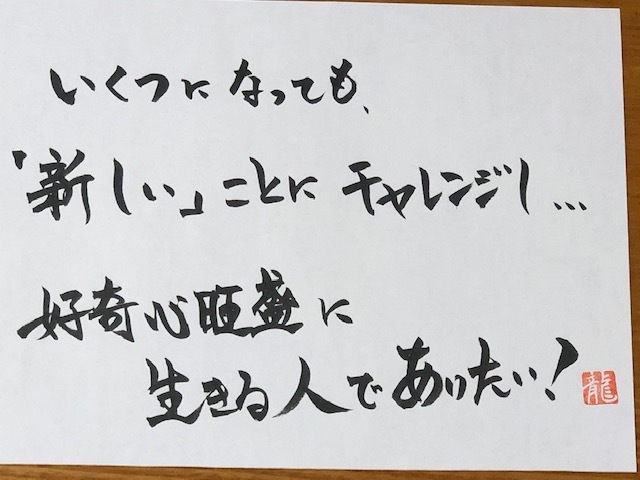 いくつになっても、
「新しい」ことにチャレンジし…
好奇心旺盛に
生きる人でありたい！
龍